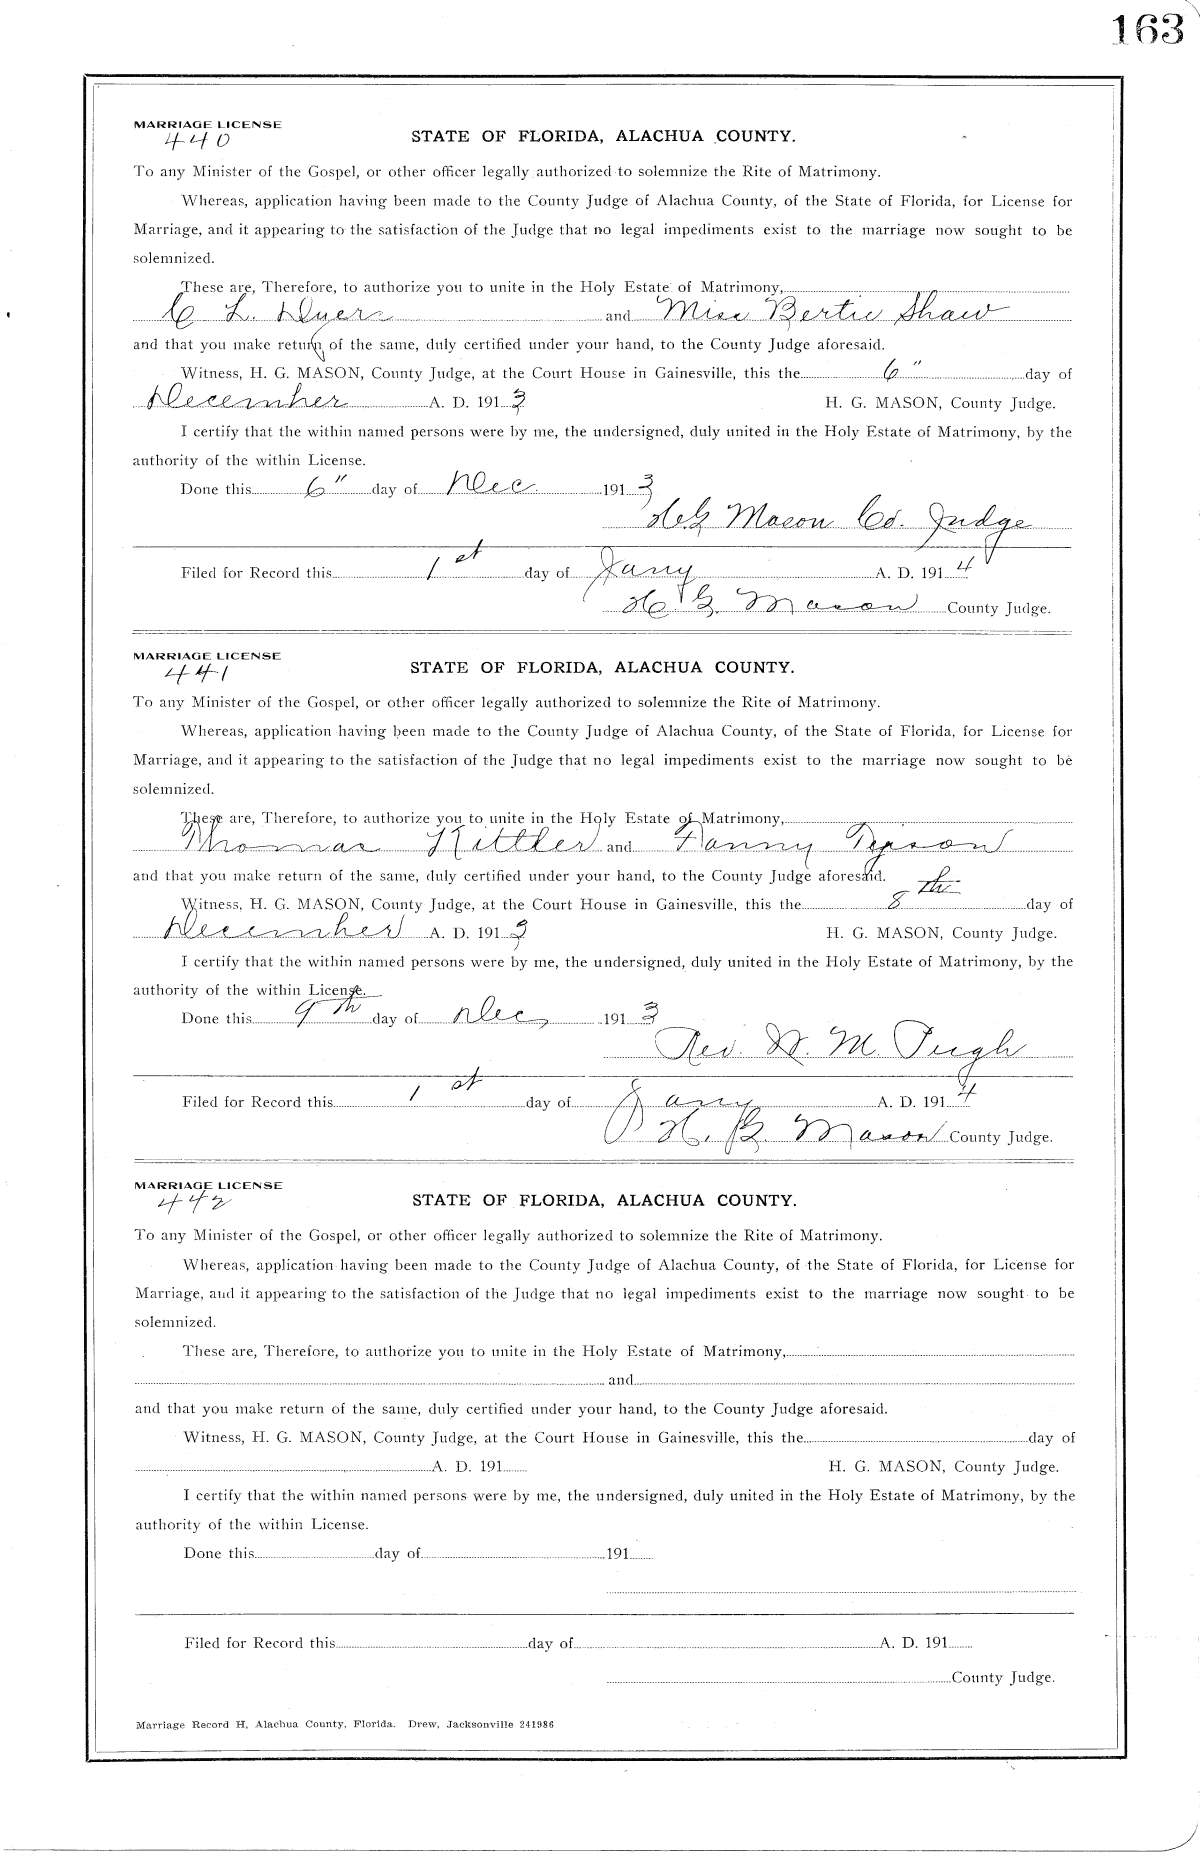 163
MARRIAGE LICENSE
440
STATE OF FLORIDA, ALACHUA COUNTY.
To any Minister of the Gospel, or other officer legally authorized to solemnize the Rite of Matrimony.
Whereas, application having been made to the County Judge of Alachua County, of the State of Florida, for License for
Marriage, and it appearing to the satisfaction of the Judge that no legal impediments exist to the marriage now sought to be
solemnized.
These are, Therefore, to authorize you to unite in the Holy Estate of Matrimony,
C L. Dyers and Miss Bertie Shaw
and that you make return of the same, duly certified under your hand, to the County Judge aforesaid.
Witness, H. G. MASON, County Judge, at the Court House in Gainesville, this the 6" day of
December A. D. 1913 H. G. MASON, County Judge.
I certify that the within named persons were by me, the undersigned, duly united in the Holy Estate of Matrimony, by the
authority of the within License.
Done this 6" day of Dec. 1913
H.G Mason Co. Judge
Filed for Record this 1st day of Jany A. D. 1914
H. G. Mason County Judge.
MARRIAGE LICENSE
441
STATE OF FLORIDA, ALACHUA COUNTY.
To any Minister of the Gospel, or other officer legally authorized to solemnize the Rite of Matrimony.
Whereas, application having been made to the County Judge of Alachua County, of the State of Florida, for License for
Marriage, and it appearing to the satisfaction of the Judge that no legal impediments exist to the marriage now sought to be
solemnized.
These are, Therefore, to authorize you to unite in the Holy Estate of Matrimony,
Thomas Kittler and Fanny Tyson
and that you make return of the same, duly certified under your hand, to the County Judge aforesaid.
Witness, H. G. MASON, County Judge, at the Court House in Gainesville, this the 8th day of
December A. D. 1913 H. G. MASON, County Judge.
I certify that the within named persons were by me, the undersigned, duly united in the Holy Estate of Matrimony, by the
authority of the within License.
Done this 9th day of Dec, 1913
Rev. W. M. Pugh
Filed for Record this 1st day of Jany A. D. 1914
H. G. Mason County Judge.
MARRIAGE LICENSE
442
STATE OF FLORIDA, ALACHUA COUNTY.
To any Minister of the Gospel, or other officer legally authorized to solemnize the Rite of Matrimony.
Whereas, application having been made to the County Judge of Alachua County, of the State of Florida, for License for
Marriage, and it appearing to the satisfaction of the Judge that no legal impediments exist to the marriage now sought to be
solemnized.
These are, Therefore, to authorize you to unite in the Holy Estate of Matrimony,
and
and that you make return of the same, duly certified under your hand, to the County Judge aforesaid.
Witness, H. G. MASON, County Judge, at the Court House in Gainesville, this the day of
A. D. 191 H. G. MASON, County Judge.
I certify that the within named persons were by me, the undersigned, duly united in the Holy Estate of Matrimony, by the
authority of the within License.
Done this day of 191
Filed for Record this day of A. D. 191
County Judge.
Marriage Record H, Alachua County, Florida. Drew, Jacksonville 241986